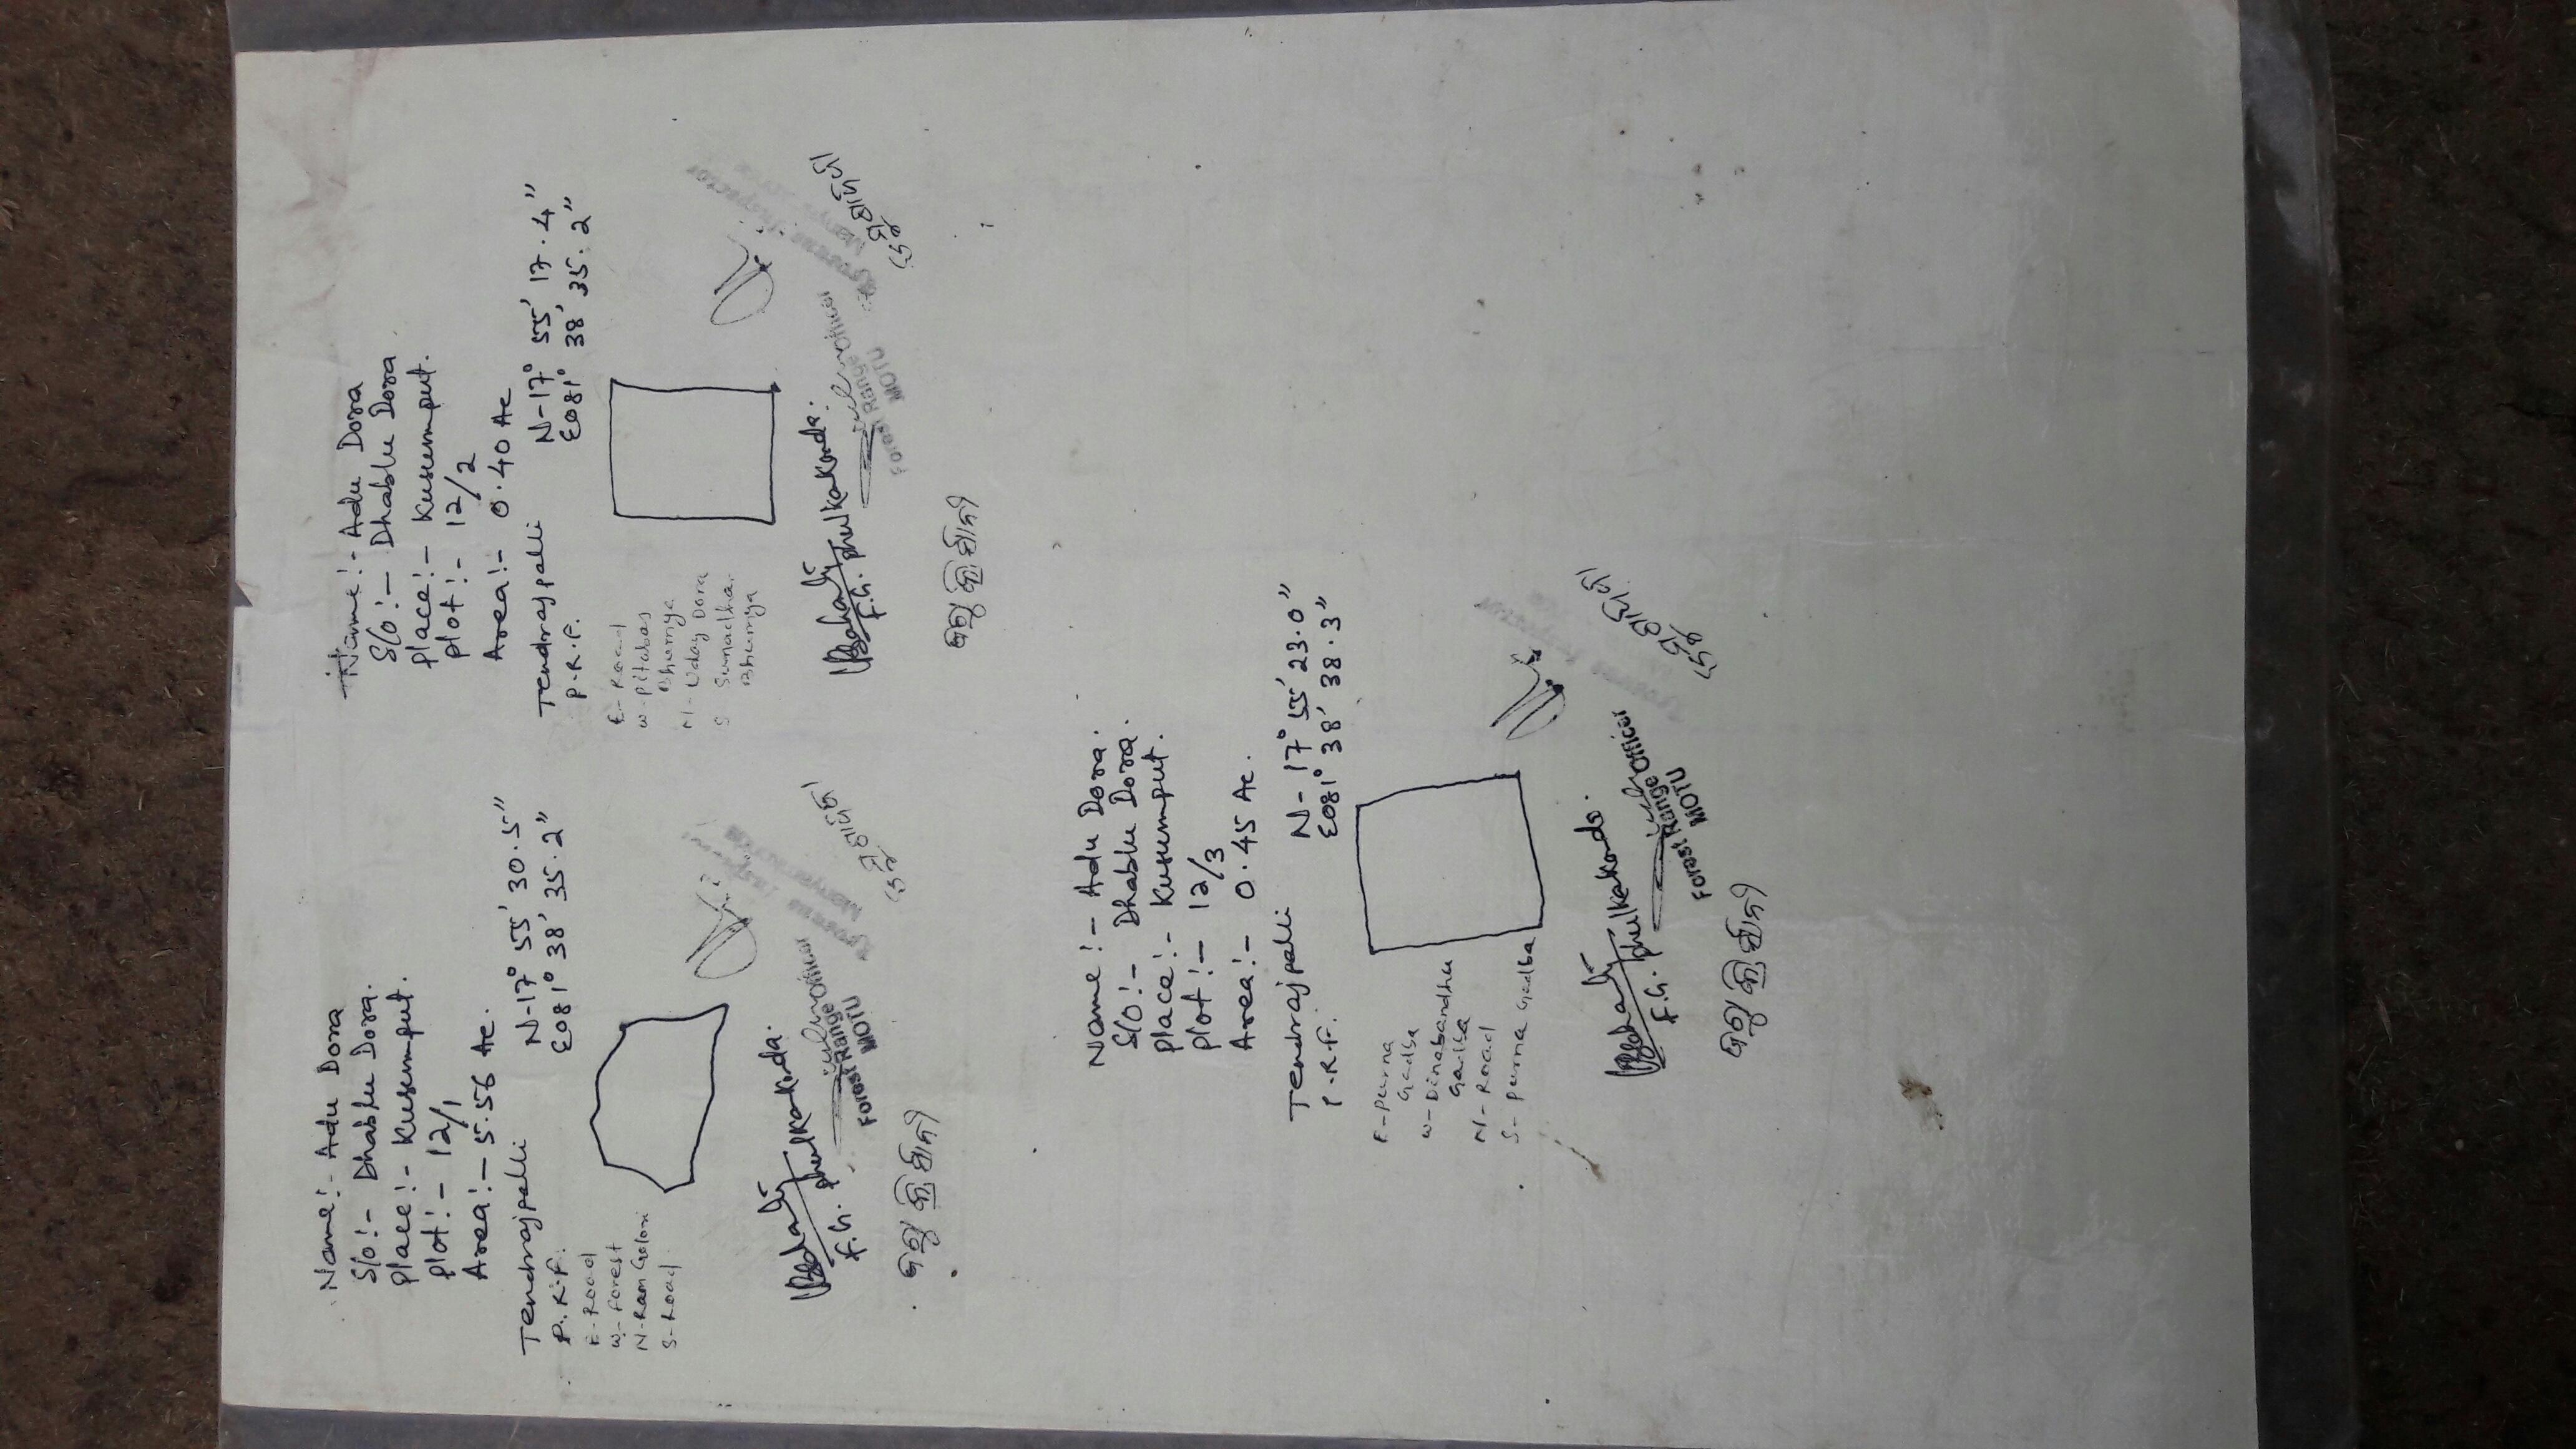 Name:- Adu Dora
S/o:- Dhablu Dora.
place:- Kusumput.
plot:- 12/1
Area:- 5.56 Ac.
Tendrajpalli
P.R.F.
N-17° 55' 30.5"
E081° 38' 35.2"
E-Road
W-Forest
N-Ram Golori
S-Road
F.G. phulkakonda.
Forest Range Officer
MOTU
Name:- Adu Dora
S/o:- Dhablu Dora.
place:- Kusumput.
plot:- 12/2
Area:- 0.40 Ac
Tendrajpalli
P.R.F.
N-17° 55' 17.4"
E081° 38' 35.2"
E-Road
W-Pitabas
Bhumya
N-Uday Dora
S Sunadha
Bhumya
F.G. phulkakonda.
Forest Range Officer
MOTU
Name:- Adu Dora.
S/o:- Dhablu Dora.
place:- Kusumput.
plot:- 12/3
Area:- 0.45 Ac.
Tendrajpalli
P.R.F.
N-17° 55' 23.0"
E081° 38' 38.3"
E-Purna
Gadba
W-Dinabandhu
Gadba
N-Road
S-Purna Gadba
F.G. phulkakonda.
Forest Range Officer
MOTU